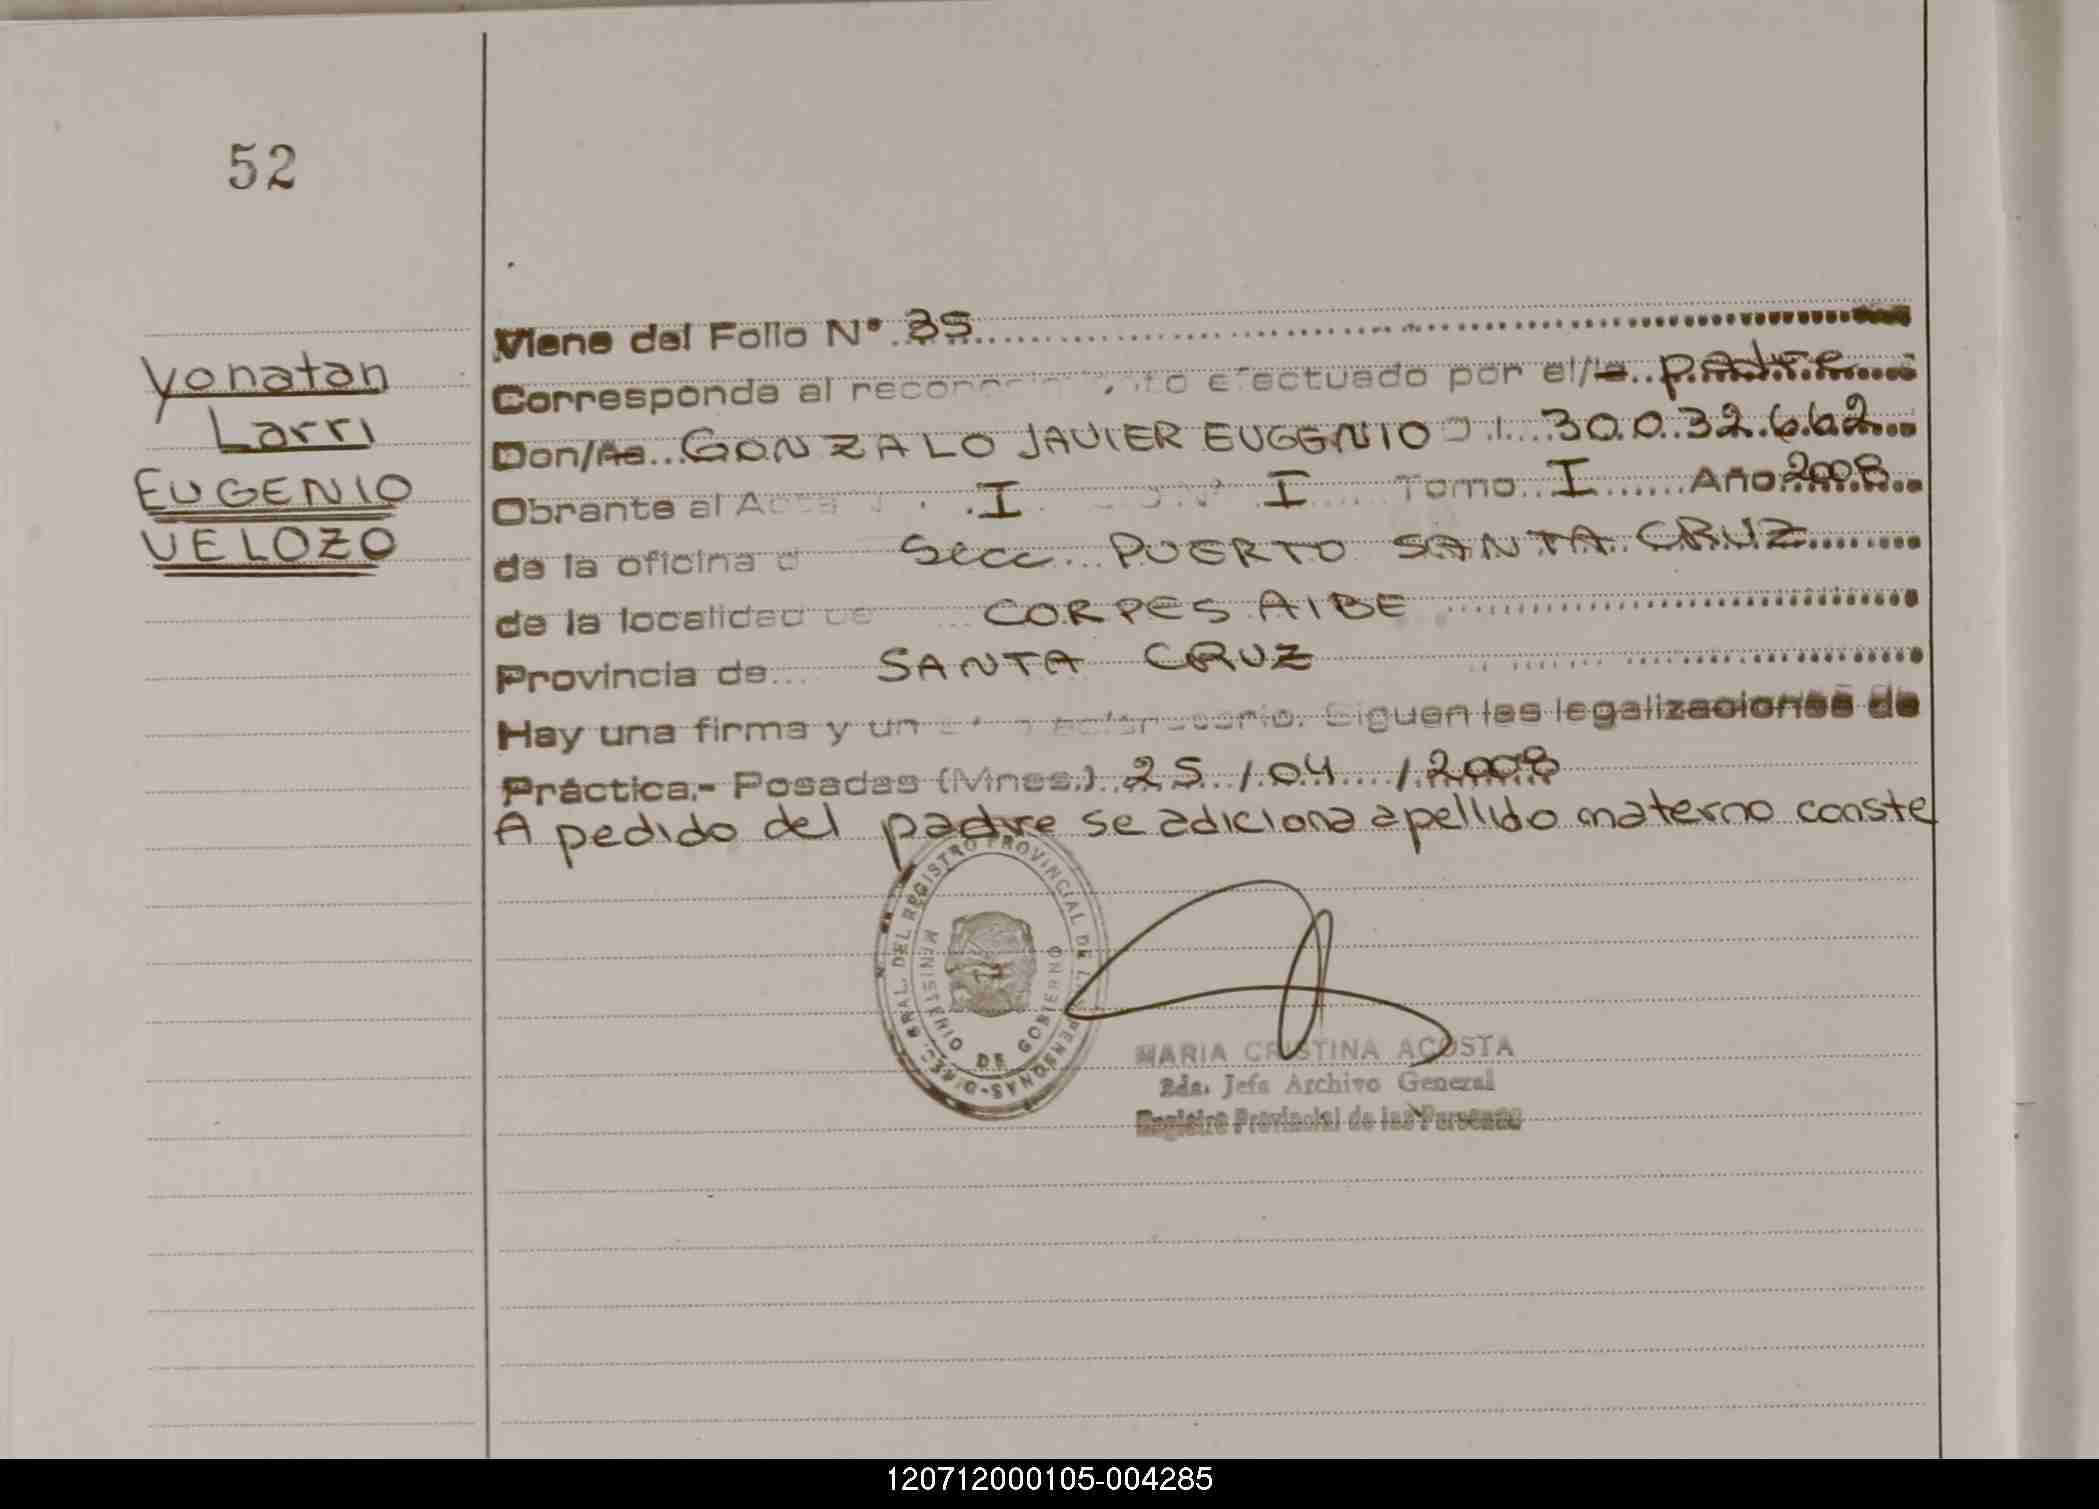 52
Yonatan
Larri
EUGENIO
VELOZO
Viene del Folio N° 35
Corresponde al reconocimiento efectuado por el/la padre
Don/ña GONZALO JAVIER EUGENIO D.I. 30.032.662
Obrante al Acta I N° I Tomo I Año 2008
de la oficina d Secc PUERTO SANTA CRUZ
de la localidad de CORPES AIBE
Provincia de SANTA CRUZ
Hay una firma y un sello aclaratorio. Siguen las legalizaciones de
Práctica.- Posadas (Mnes.) 25 / 04 / 2008
A pedido del padre se adiciona apellido materno conste
DIREC. GRAL. DEL REGISTRO PROVINCIAL DE LAS PERSONAS
MINISTERIO DE GOBIERNO
MARIA CRISTINA ACOSTA
2da. Jefa Archivo General
Registro Provincial de las Personas
120712000105-004285